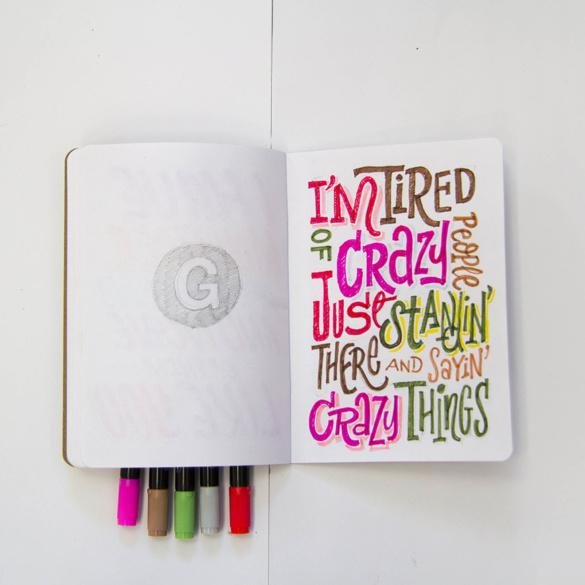 G
I'M TiRED
OF CRaZy PeoPLe
JUSt StANdiN'
THeRe AND SayiN'
CRaZy THiNGS